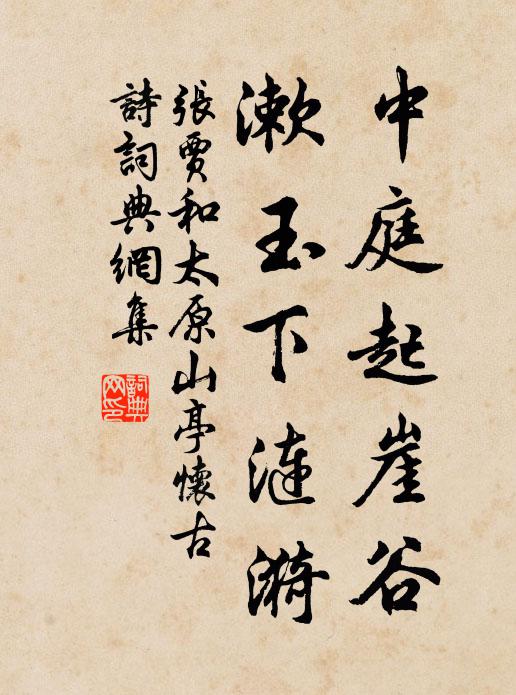 中庭起崖谷
漱玉下漣漪
張賈和太原山亭懷古
詩詞典網集
詞典
网印